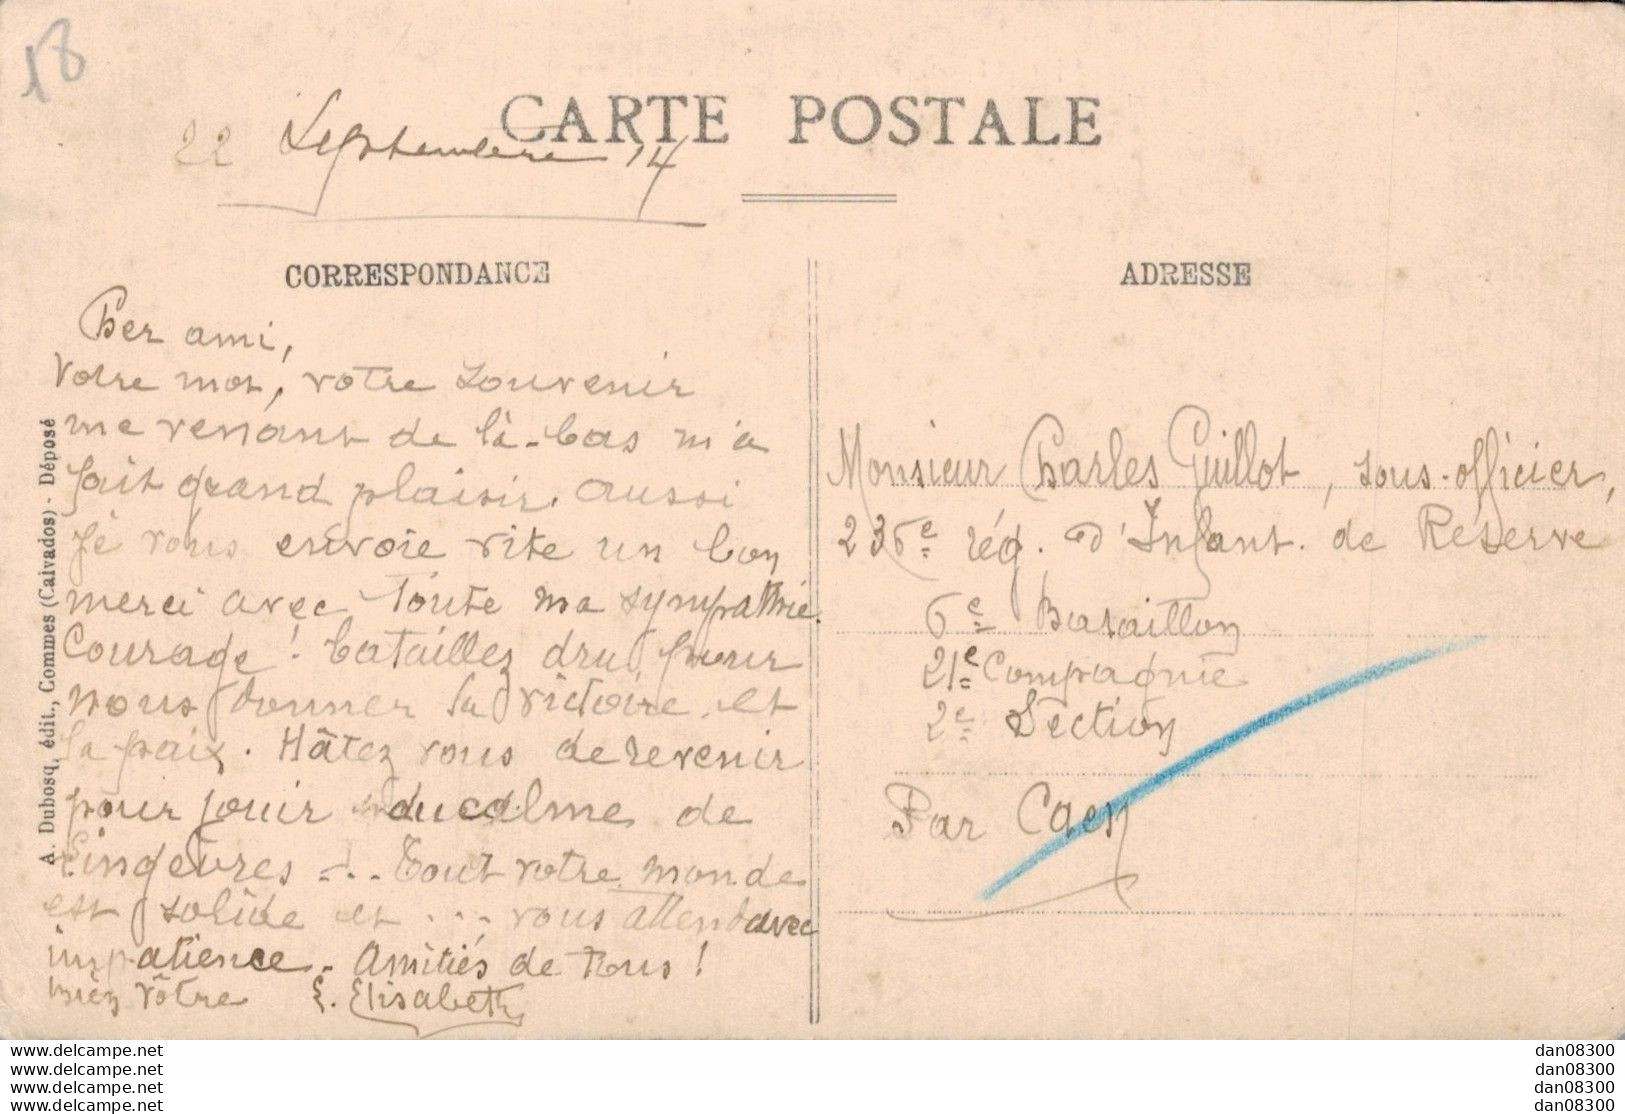 18
CARTE POSTALE
22 Septembre 14
CORRESPONDANCE
Cher ami,
Votre mot, votre souvenir
me venant de là-bas m'a
fait grand plaisir. Aussi
je vous envoie vite un bon
merci avec toute ma sympathie.
Courage ! bataillez dru pour
nous donner la victoire et
la paix. Hâtez vous de revenir
pour jouir du calme de
Lingèvres ... Tout votre monde
est solide et ... vous attend avec
impatience. Amitiés de tous !
bien vôtre E. Elisabeth
A. Dubosq, édit., Commes (Calvados) - Déposé
ADRESSE
Monsieur Charles Guillot, sous-officier,
236e rég. d'Infant. de Réserve
6e Bataillon
21e Compagnie
2e Section
Par Caen
www.delcampe.net
www.delcampe.net
www.delcampe.net
www.delcampe.net
dan08300
dan08300
dan08300
dan08300